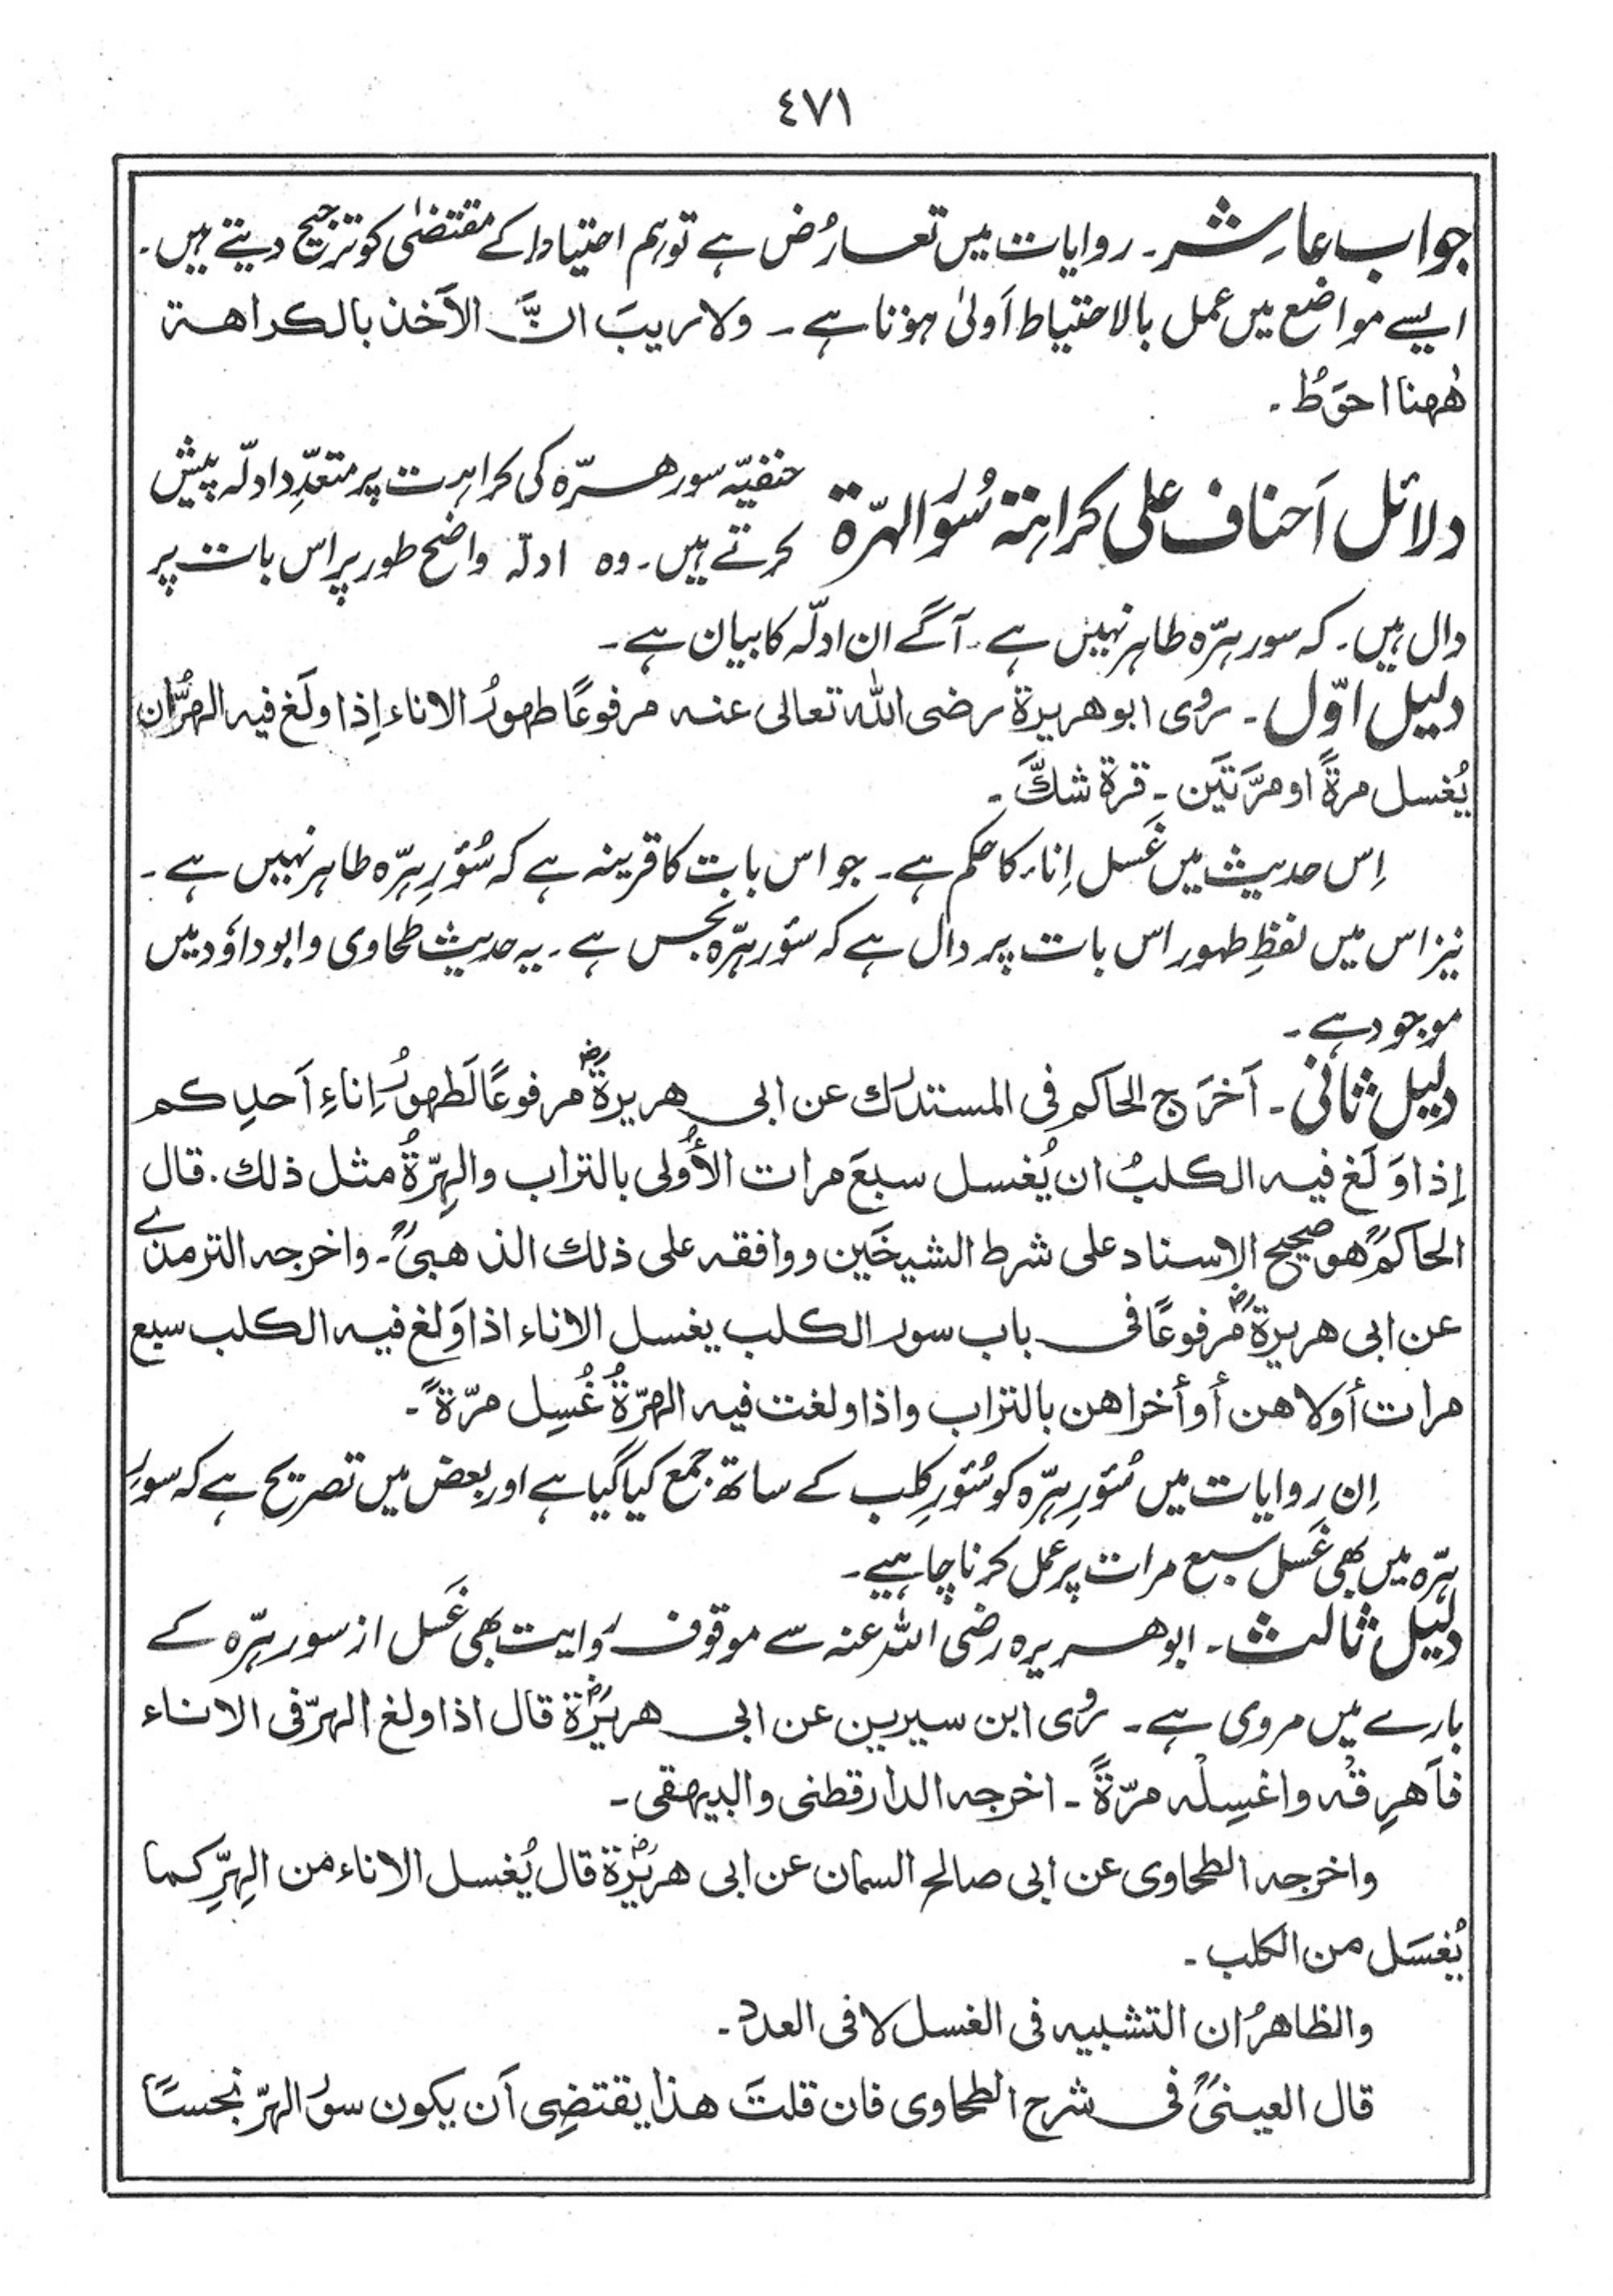 ٤٧١
جواب عاشر ۔ روایات میں تعارُض ہے تو ہم احتیاط کے مقتضیٰ کو ترجیح دیتے ہیں ۔
ایسے مواضع میں عمل بالاحتیاط اَولیٰ ہوتا ہے ۔ ولا ریبَ انَّ الاَخذ بالکراھۃ
ھٰھنا احوَطُ ۔
دلائل اَحناف علی کراہتہ سُؤر الہرّۃ
حنفیّہ سور ھرّہ کی کراہت پر متعدِّد ادلّہ پیش
کرتے ہیں ۔ وہ ادلّہ واضح طور پر اس بات پر
دال ہیں ۔ کہ سور ہرّہ طاہر نہیں ہے ۔ آگے ان ادلّہ کا بیان ہے ۔
دلیل اوّل ۔ رَوی ابوھریرۃ رضی اللہ تعالی عنہ مرفوعًا طہورُ الاناء اِذا ولَغ فیہ الھرُّ ان
یُغسل مرۃً او مرَّتَین ۔ قرۃ شکَّ ۔
اِس حدیث میں غَسل اِناء کا حکم ہے ۔ جو اس بات کا قرینہ ہے کہ سُؤرِ ہرّہ طاہر نہیں ہے ۔
نیز اس میں لفظِ طہور اس بات پر دال ہے کہ سؤر ہرّہ نجس ہے ۔ یہ حدیث طحاوی و ابوداؤد میں
موجود ہے ۔
دلیل ثانی ۔ اَخرَج الحاکم فی المستدرَک عن ابی ھریرۃؓ مرفوعًا لَطھورُ اِناءِ اَحدِکم
اِذا وَلَغ فیہ الکلبُ ان یُغسل سبعَ مرات الأُولی بالتراب والہِرّۃُ مثل ذلک . قال
الحاکمؒ ھو صحیح الاسناد علی شرط الشیخَین ووافقہ علی ذلک الذھبیؒ ۔ واخرجہ الترمذی
عن ابی ھریرۃؓ مرفوعًا فی باب سور الکلب یغسل الاناء اذا وَلَغ فیہ الکلب سبع
مرات أولاھن أو أخراھن بالتراب واذا ولغت فیہ الھرّۃُ غُسِل مرّۃً ۔
اِن روایات میں سُؤرِ ہرّہ کو سُؤرِ کلب کے ساتھ جمع کیا گیا ہے اور بعض میں تصریح ہے کہ سور
ہرّہ میں بھی غَسل سبع مرات پر عمل کرنا چاہیے ۔
دلیل ثالث ۔ ابوھریرہ رضی اللہ عنہ سے موقوف روایت بھی غَسل از سور ہرّہ کے
بارے میں مروی ہے ۔ رَوی ابن سیرین عن ابی ھریرۃؓ قال اذا ولغ الہرّ فی الاناء
فاَھرِقْہ واغسِلْہ مرّۃً ۔ اخرجہ الدارقطنی والبیھقی ۔
واخرجہ الطحاوی عن ابی صالح السمان عن ابی ھریرۃؓ قال یُغسل الاناء من الہِرِّ کما
یُغسَل من الکلب ۔
والظاھرُ ان التشبیہ فی الغسل لا فی العدد ۔
قال العینیؒ فی شرح الطحاوی فان قلتَ ھذا یقتضِی اَن یکون سورُ الہرّ نجسًا